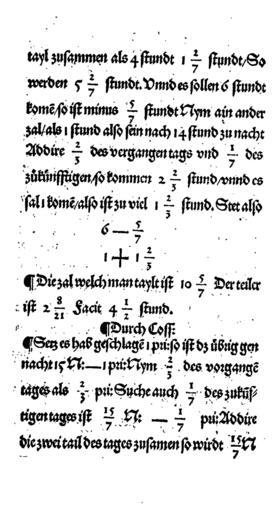 tayl zusammen als 4 stundt 1 2/7 stundt/So
werden 5 2/7 stundt. Vnnd es sollen 6 stundt
komē/so ist minus 5/7 stundt Nym ain ander
zal/als 1 stund also sein nach 14 stund zu nacht
Addire 2/3 des vergangen tags vnd 1/7 des
zůkünfftigen/so kommen 2 2/3 stund/vnnd es
sal 1 komē/also ist zu viel 1 2/3 stund. Stet also
6 — 5/7
1 + 1 2/3
¶ Die zal welch man taylt ist 10 5/7 Der teiler
ist 2 8/21 Facit 4 1/2 stund.
¶ Durch Coss:
¶ Setz es hab geschlagē 1 pri: so ist dz übrig gen
nacht 15 N: — 1 pri: Nym 2/3 des vorgangē
tages als 2/3 pri: Suche auch 1/7 des zuküf-
tigen tages ist 15/7 N: — 1/7 pri: Addire
die zwei tail des tages zusamen so wirdt 15/7 N